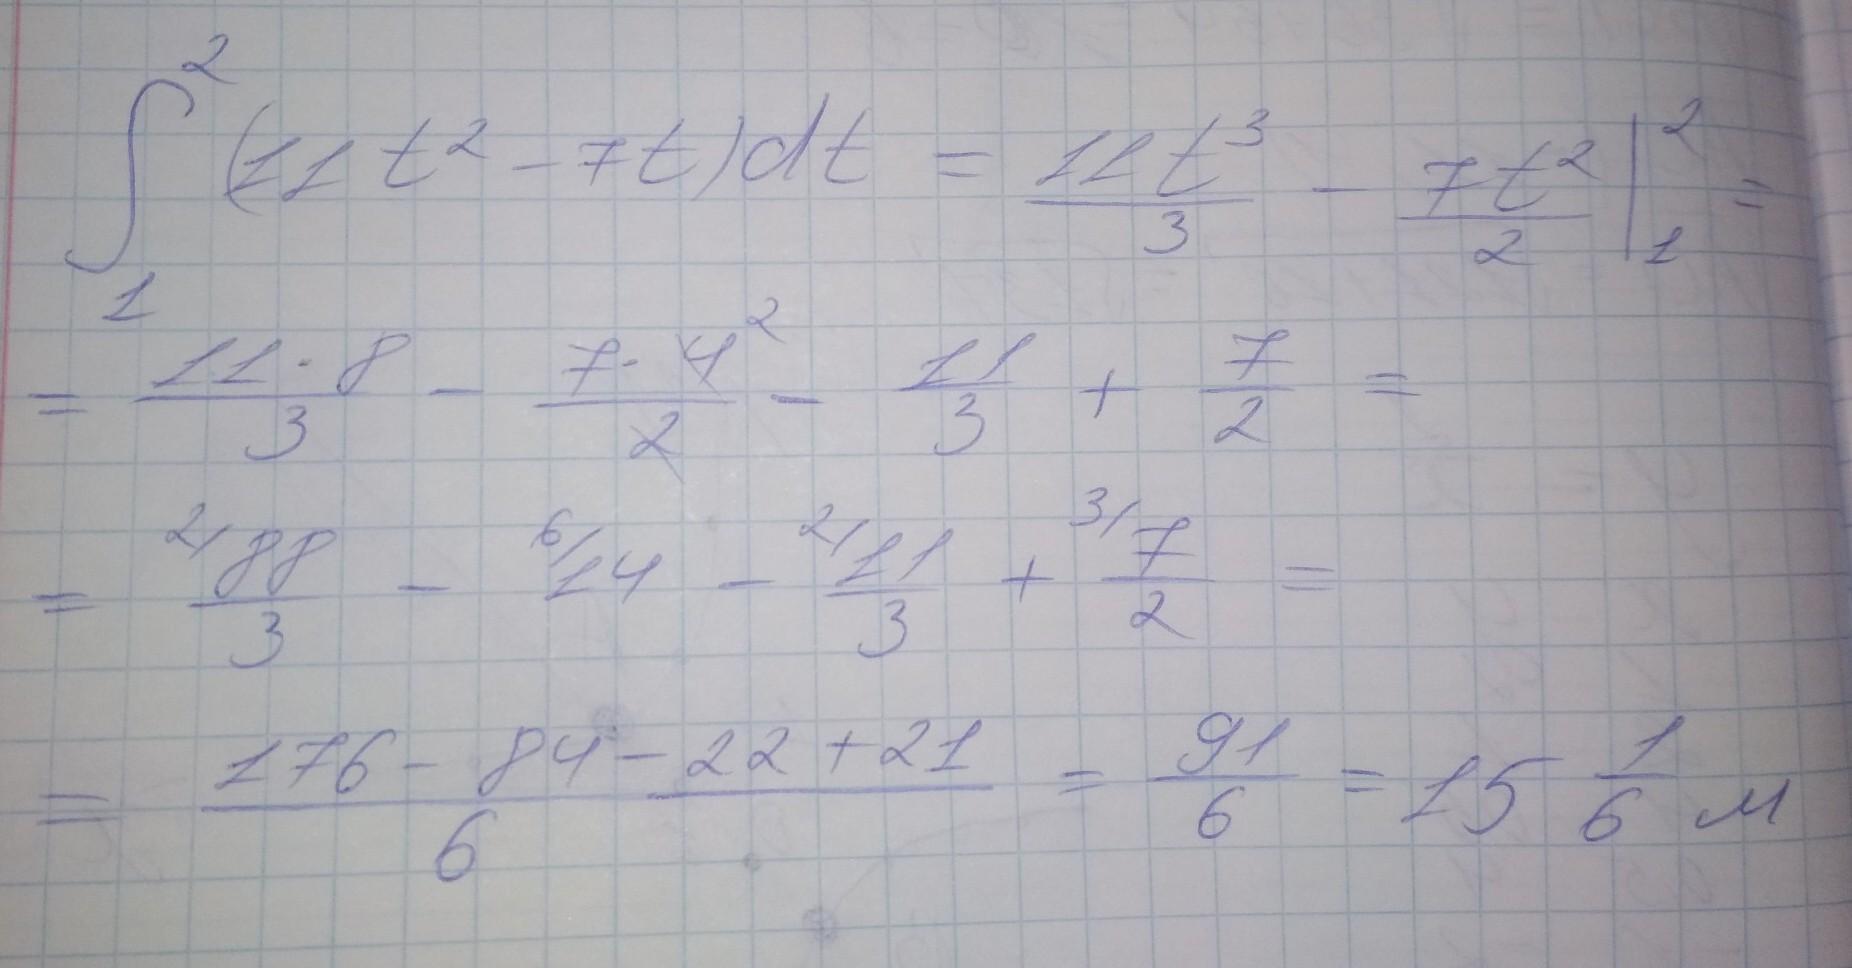 ∫₁² (11t² - 7t)dt = 11t³/3 - 7t²/2 |₁² =
= 11·8/3 - 7·4²/2 - 11/3 + 7/2 =
= ²/88/3 - ⁶/14 - ²/11/3 + ³/7/2 =
= 176 - 84 - 22 + 21/6 = 91/6 = 15 1/6 м